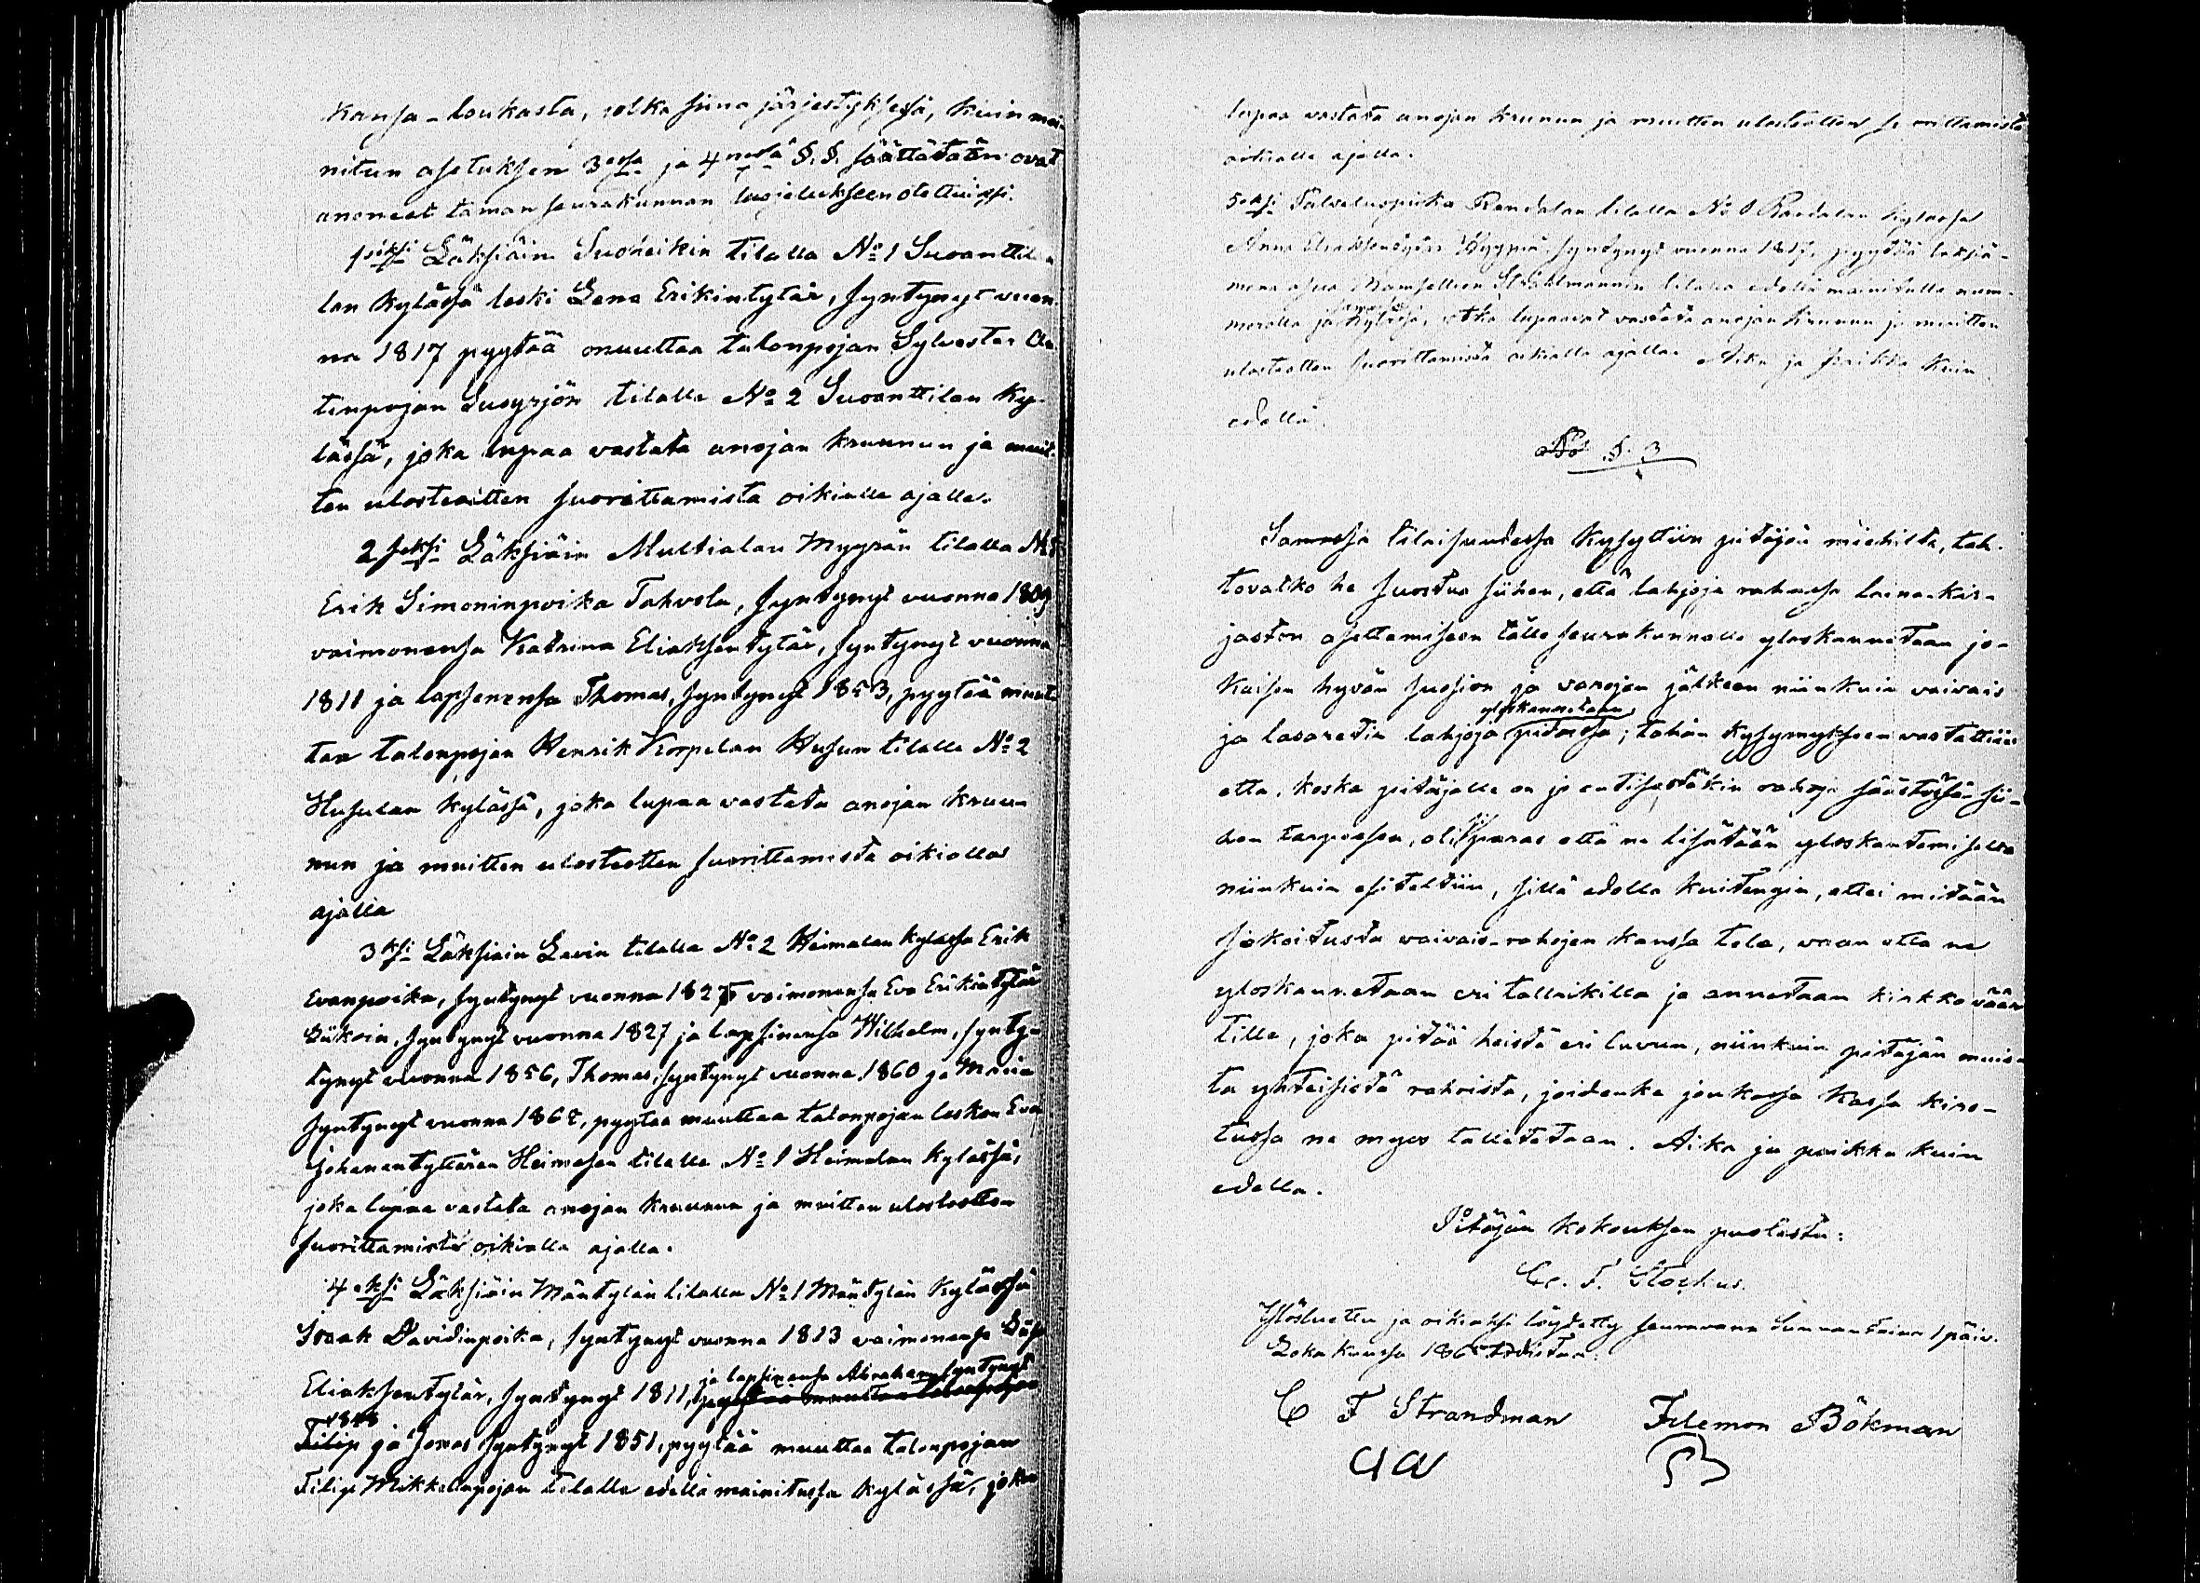 kansa-loukasta, jotka siina järjestyksesä, kuin mai-
nitun asetuksen 3essa ja 4nessä §.§. säättätään ovat
anoneet tämän seurakunnan luojelukseen otettuiksi.
1seksi Läksiäin Suoheikin tilalla No 1 Suvanttil
lan kylässä leski Lena Erikintytär, syntynyt vuon
na 1817 pyytää muuttaa talonpojan Sylvester
tinpojan Susyrjön tilalla No 2 Suvanttilan ky-
lässä, joka lupaa vastata anojan kruunun ja muit-
ten ulosteoitten suorittamista oikialla ajalla.
2seksi Läksiäin Multialan Myyrän tilalla No
Erik Simoninpoika Tahvola, syntynyt vuonna 1809
vaimonensa Katrina Eliaksentytär, syntynyt vuonna
1811 ja lapsenensa Thomas, syntynyt 1853, pyytää muut
taa talonpojan Henrik Korpelan Husun tilalla No 2
Husulan kylässä, joka lupaa vastata anojan kruu-
nun ja muitten ulosteotten suorittamista oikialla
ajalla
3ksi Läksiäin Lavin tilalla No 2 Heimalan kylässa Erik
Evanpoika, syntynyt vuonna 1827 vaimonensa Eva Erikintytär
syntynyt vuonna 1827 ja lapsinensa Wilhelm, synty-
tynyt vuonna 1856, Thomas, syntynyt vuonna 1860 ja Maria
syntynyt vuonna 1862, pyytaa muuttaa talonpojan lesken Eva
Johanentyttären Heimosen tilalla No 1 Heimalan kylässä,
joka lupaa vastata anojan kruunun ja muitten ulosteotten
suorittamista oikialla ajalla.
4eksi Läksiäin Mäntylän tilalla No 1 Mäntylän kylässä
Isaak Davidinpoika, syntynyt vuonna 1813 vaimonensa
ja lapsinensa Abraham syntynyt
Eliaksentytär, syntynyt 1811, pyytää muuttaa talonpojan
1848
Filip ja Jonas syntynyt 1851, pyytää muuttaa talonpojan
Filip Mikkelinpojan tilalla edellä mainitussa kylässä, joka
lupaa vastata anojan kruunun ja muitten ulosteotten suorittamista
oikialla ajalla.
5eksi Palveluspiika Randalan tilalla No 1 Randalan kylässä
Anna Eliaksentytär syntynyt vuonna 1817, pyytää läksiä-
mena Mamsellien Strählmannin tilalla edellä mainitulla num-
samassa
merolla ja kylässä, jotka lupaavat vastata anojan kruunun ja muitten
ulosteotten suorittamista oikialla ajalla. Aika ja paikka kuin
edellä.
No §. 3
Samassa tilaisuudessa kysyttiin pitäjän miehiltä, tah-
tovatko he suostua siihen, että lahjoja rahassa laina-kir-
jaston asettamiseen tälle seurakunnalle yloskannetaan jo-
kaisen hyvän suosion ja varojen jälkeen niinkuin vaivais
yloskannetaan
ja lasaretin lahjoja pidoissa; tähän kysymykseen vastattiin
että, koska pitäjällä on jo entisestäkin rahoja säästössä sii-
hen tarpeesen, olisi paras että ne lisätään yloskantamisella
niinkuin esiteltiin, sillä edolla kuitengin, ettei mitään
sekoitusta vaivais-rahojen kanssa tule, vaan että ne
yloskannetaan eri tallrikilla ja annetaan kirkkoväär
tille, joka pitää heistä eri luvun, niinkuin pitäjän muis-
ta yhteisistä rahoista, joidenka joukossa kassa kirs-
tussa ne myös talletetaan. Aika ja paikka kuin
edellä.
Pitäjän kokouksen puolesta:
C. F. Stockus.
Ylösluettu ja oikiaksi löydetty seuraavana Sunnuntaina 1 päiv.
Lokakuussa 186 todistaa:
C F Strandman Filemon Bökman